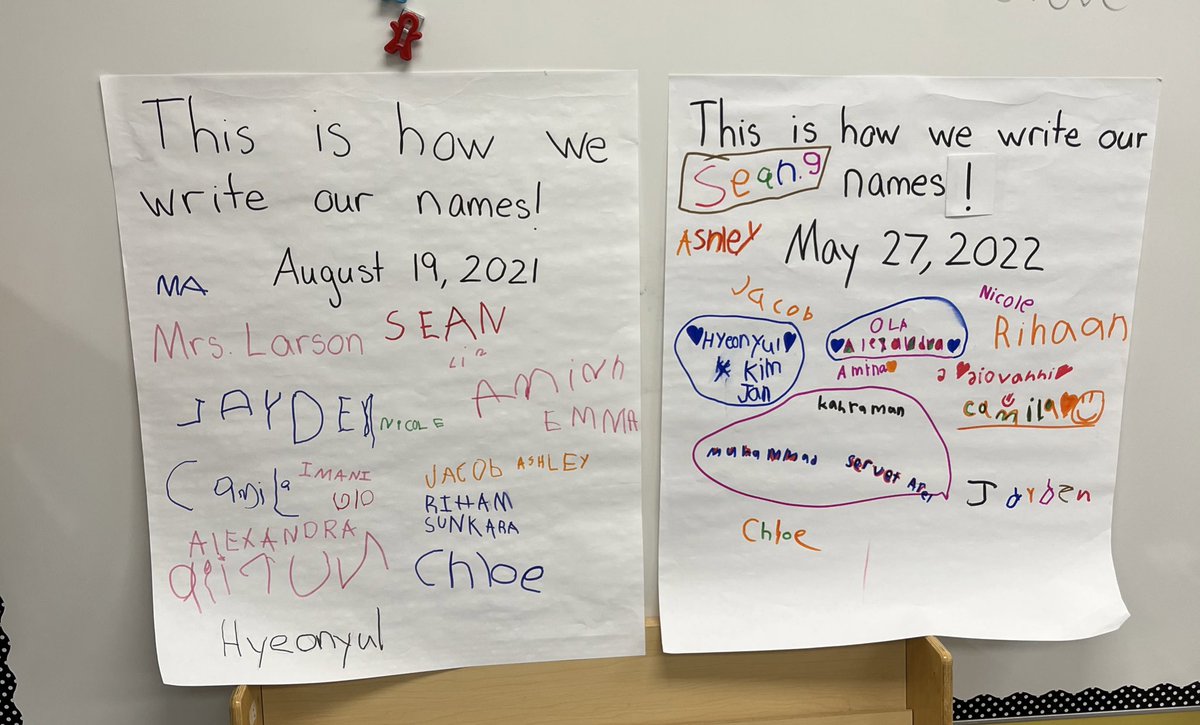 This is how we
write our names!
August 19, 2021
MA
Mrs. Larson
SEAN
JAYDEN
NICOLE
EMMA
Camila
IMANI
JACOb
ASHLEY
RIHAM
SUNKARA
ALEXANDRA
Chloe
Hyeonyul
This is how we write our
Sean.g
names!
Ashley
May 27, 2022
Jacob
Nicole
Hyeonyul
Kim
Jan
OLA
Alexandra
Rihaan
Amina
giovanni
camila
kahraman
muhammad
servet
Jayden
Chloe